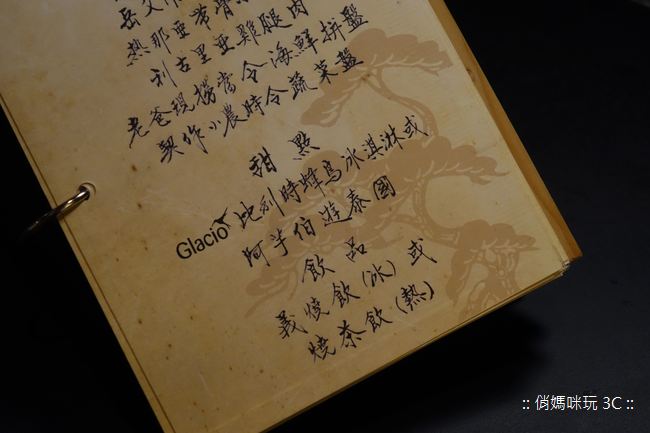 熱那亞帶骨
利古里亞雞腿肉
老爸現撈當令海鮮拼盤
契作小農時令蔬菜盤
甜點
Glacio 比利時蜂鳥冰淇淋或
阿芋伯遊泰國
飲品
義燒飲(冰)或
燒茶飲(熱)
:: 俏媽咪玩 3C ::